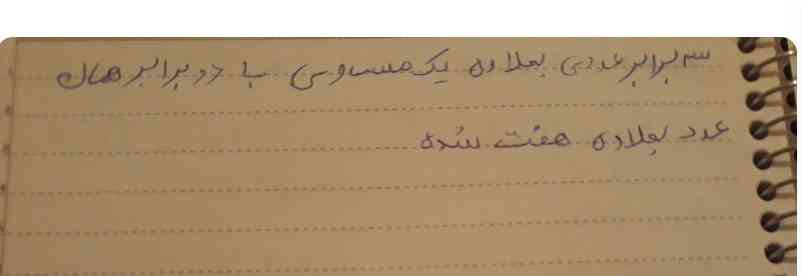 سه برابر عددی بعلاوه یک مساوی با دو برابر همان
عدد بعلاوه هفت شده